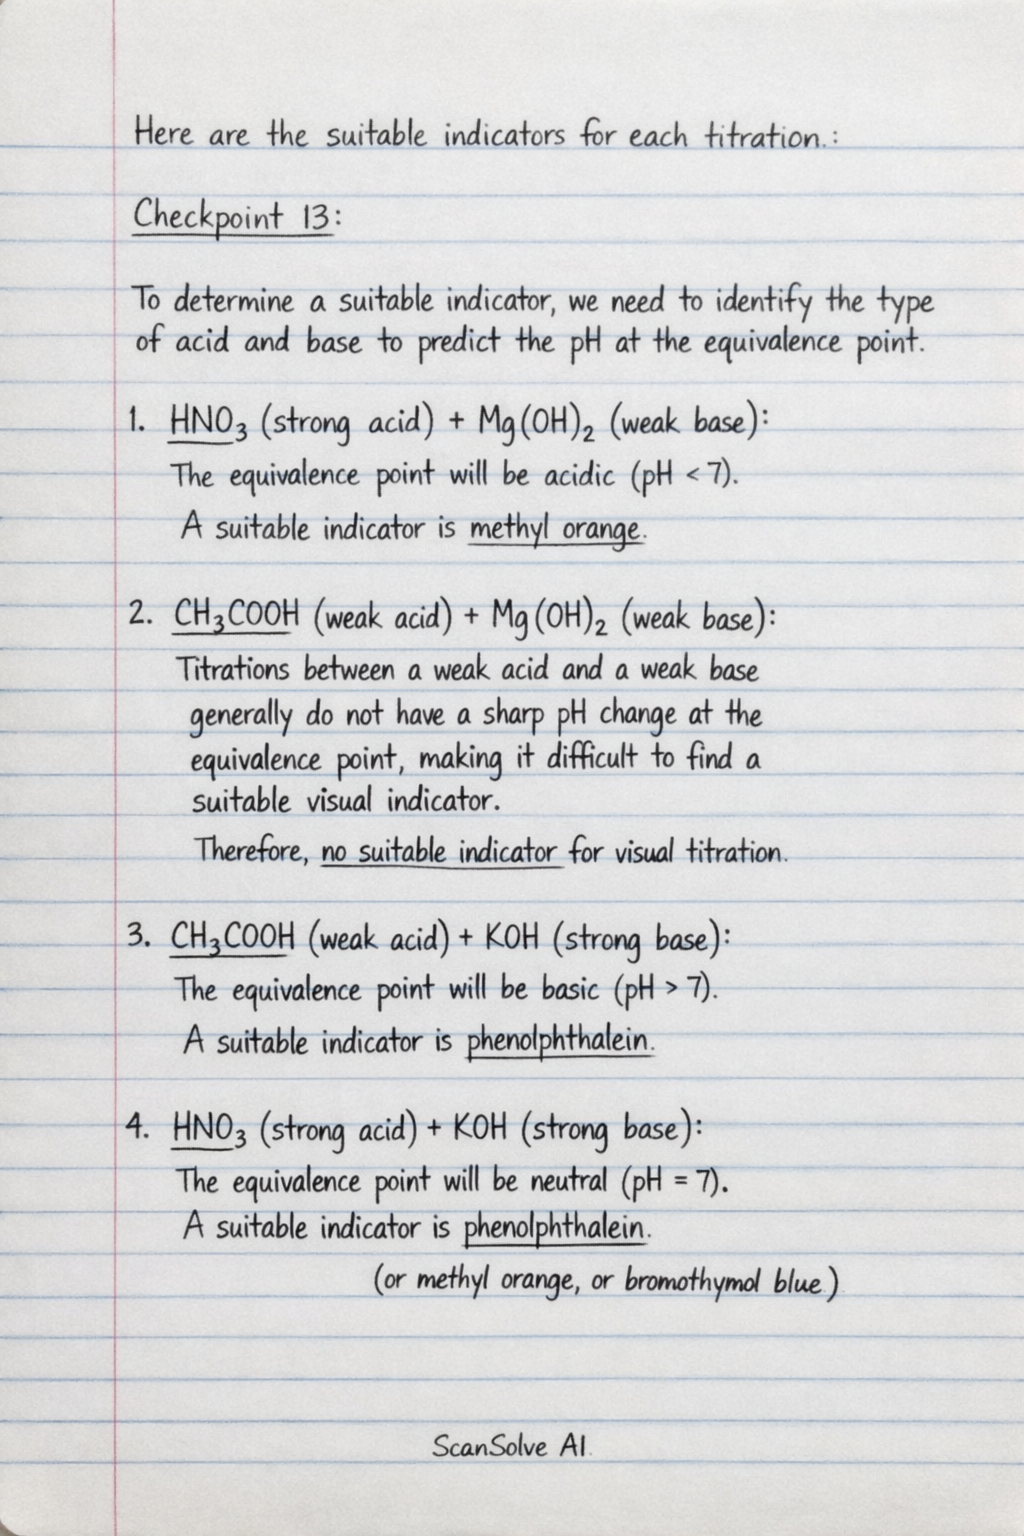 Here are the suitable indicators for each titration.:
Checkpoint 13:
To determine a suitable indicator, we need to identify the type
of acid and base to predict the pH at the equivalence point.
1. HNO₃ (strong acid) + Mg(OH)₂ (weak base):
The equivalence point will be acidic (pH < 7).
A suitable indicator is methyl orange.
2. CH₃COOH (weak acid) + Mg(OH)₂ (weak base):
Titrations between a weak acid and a weak base
generally do not have a sharp pH change at the
equivalence point, making it difficult to find a
suitable visual indicator.
Therefore, no suitable indicator for visual titration.
3. CH₃COOH (weak acid) + KOH (strong base):
The equivalence point will be basic (pH > 7).
A suitable indicator is phenolphthalein.
4. HNO₃ (strong acid) + KOH (strong base):
The equivalence point will be neutral (pH = 7).
A suitable indicator is phenolphthalein.
(or methyl orange, or bromothymol blue.)
ScanSolve AI